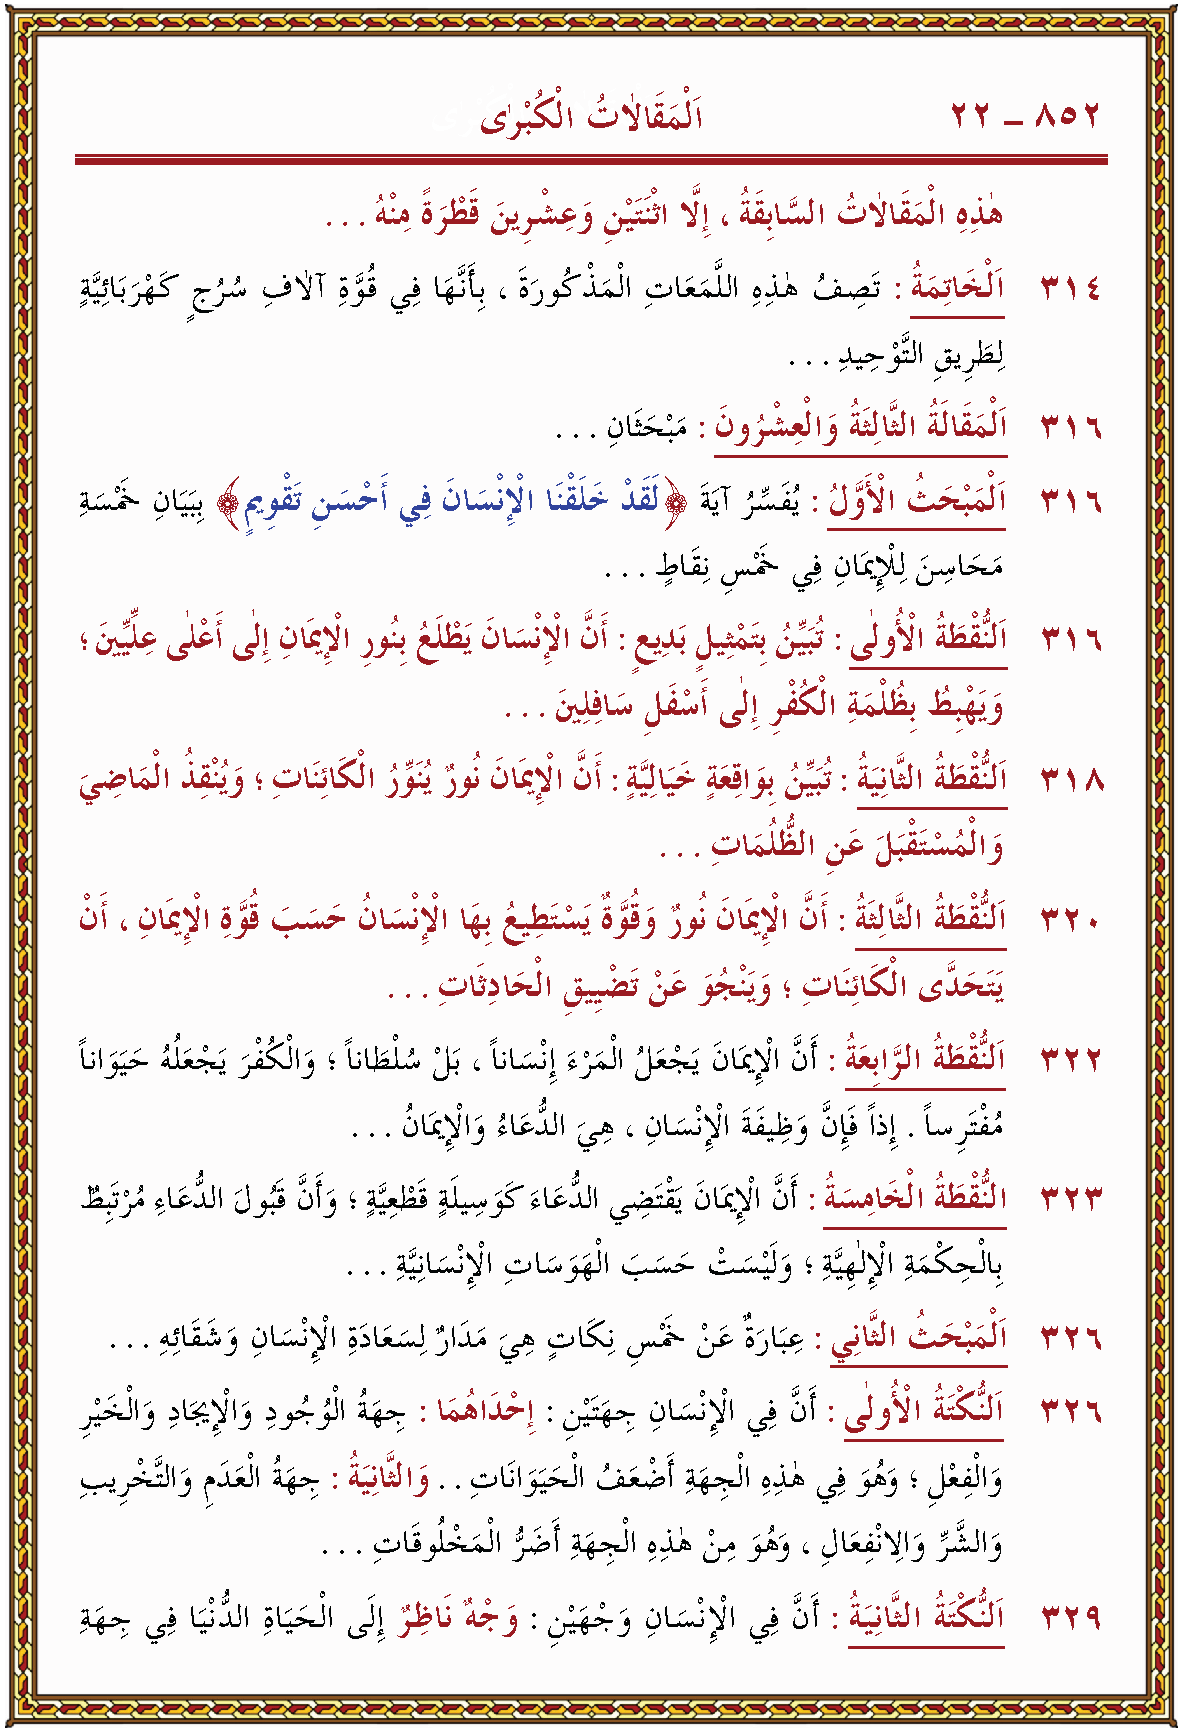 ٨٥٢ ــ ٢٢ اَلْمَقَالَاتُ الْكُبْرٰى
هٰذِهِ الْمَقَالَاتُ السَّابِقَةُ ، إِلَّا اثْنَتَيْنِ وَعِشْرِينَ قَطْرَةً مِنْهُ . . .
٣١٤ اَلْخَاتِمَةُ : تَصِفُ هٰذِهِ اللَّمَعَاتِ الْمَذْكُورَةَ ، بِأَنَّهَا فِي قُوَّةِ آلَافِ سُرُجٍ كَهْرَبَائِيَّةٍ
لِطَرِيقِ التَّوْحِيدِ . . .
٣١٦ اَلْمَقَالَةُ الثَّالِثَةُ وَالْعِشْرُونَ : مَبْحَثَانِ . . .
٣١٦ اَلْمَبْحَثُ الْأَوَّلُ : يُفَسِّرُ آيَةَ ﴿لَقَدْ خَلَقْنَا الْإِنْسَانَ فِي أَحْسَنِ تَقْوِيمٍ﴾ بِبَيَانِ خَمْسَةِ
مَحَاسِنَ لِلْإِيمَانِ فِي خَمْسِ نِقَاطٍ . . .
٣١٦ اَلنُّقْطَةُ الْأُولٰى : تُبَيِّنُ بِتَمْثِيلٍ بَدِيعٍ : أَنَّ الْإِنْسَانَ يَطْلَعُ بِنُورِ الْإِيمَانِ إِلٰى أَعْلٰى عِلِّيِّينَ ؛
وَيَهْبِطُ بِظُلْمَةِ الْكُفْرِ إِلٰى أَسْفَلِ سَافِلِينَ . . .
٣١٨ اَلنُّقْطَةُ الثَّانِيَةُ : تُبَيِّنُ بِوَاقِعَةٍ خَيَالِيَّةٍ : أَنَّ الْإِيمَانَ نُورٌ يُنَوِّرُ الْكَائِنَاتِ ؛ وَيُنْقِذُ الْمَاضِيَ
وَالْمُسْتَقْبَلَ عَنِ الظُّلُمَاتِ . . .
٣٢٠ اَلنُّقْطَةُ الثَّالِثَةُ : أَنَّ الْإِيمَانَ نُورٌ وَقُوَّةٌ يَسْتَطِيعُ بِهَا الْإِنْسَانُ حَسَبَ قُوَّةِ الْإِيمَانِ ، أَنْ
يَتَحَدَّى الْكَائِنَاتِ ؛ وَيَنْجُوَ عَنْ تَضْيِيقِ الْحَادِثَاتِ . . .
٣٢٢ اَلنُّقْطَةُ الرَّابِعَةُ : أَنَّ الْإِيمَانَ يَجْعَلُ الْمَرْءَ إِنْسَاناً ، بَلْ سُلْطَاناً ؛ وَالْكُفْرَ يَجْعَلُهُ حَيَوَاناً
مُفْتَرِساً . إِذاً فَإِنَّ وَظِيفَةَ الْإِنْسَانِ ، هِيَ الدُّعَاءُ وَالْإِيمَانُ . . .
٣٢٣ النُّقْطَةُ الْخَامِسَةُ : أَنَّ الْإِيمَانَ يَقْتَضِي الدُّعَاءَ كَوَسِيلَةٍ قَطْعِيَّةٍ ؛ وَأَنَّ قَبُولَ الدُّعَاءِ مُرْتَبِطٌ
بِالْحِكْمَةِ الْإِلٰهِيَّةِ ؛ وَلَيْسَتْ حَسَبَ الْهَوَسَاتِ الْإِنْسَانِيَّةِ . . .
٣٢٦ اَلْمَبْحَثُ الثَّانِي : عِبَارَةٌ عَنْ خَمْسِ نِكَاتٍ هِيَ مَدَارٌ لِسَعَادَةِ الْإِنْسَانِ وَشَقَائِهِ . . .
٣٢٦ اَلنُّكْتَةُ الْأُولٰى : أَنَّ فِي الْإِنْسَانِ جِهَتَيْنِ : إِحْدَاهُمَا : جِهَةُ الْوُجُودِ وَالْإِيجَادِ وَالْخَيْرِ
وَالْفِعْلِ ؛ وَهُوَ فِي هٰذِهِ الْجِهَةِ أَضْعَفُ الْحَيَوَانَاتِ . . وَالثَّانِيَةُ : جِهَةُ الْعَدَمِ وَالتَّخْرِيبِ
وَالشَّرِّ وَالِانْفِعَالِ ، وَهُوَ مِنْ هٰذِهِ الْجِهَةِ أَضَرُّ الْمَخْلُوقَاتِ . . .
٣٢٩ اَلنُّكْتَةُ الثَّانِيَةُ : أَنَّ فِي الْإِنْسَانِ وَجْهَيْنِ : وَجْهٌ نَاظِرٌ إِلَى الْحَيَاةِ الدُّنْيَا فِي جِهَةِ